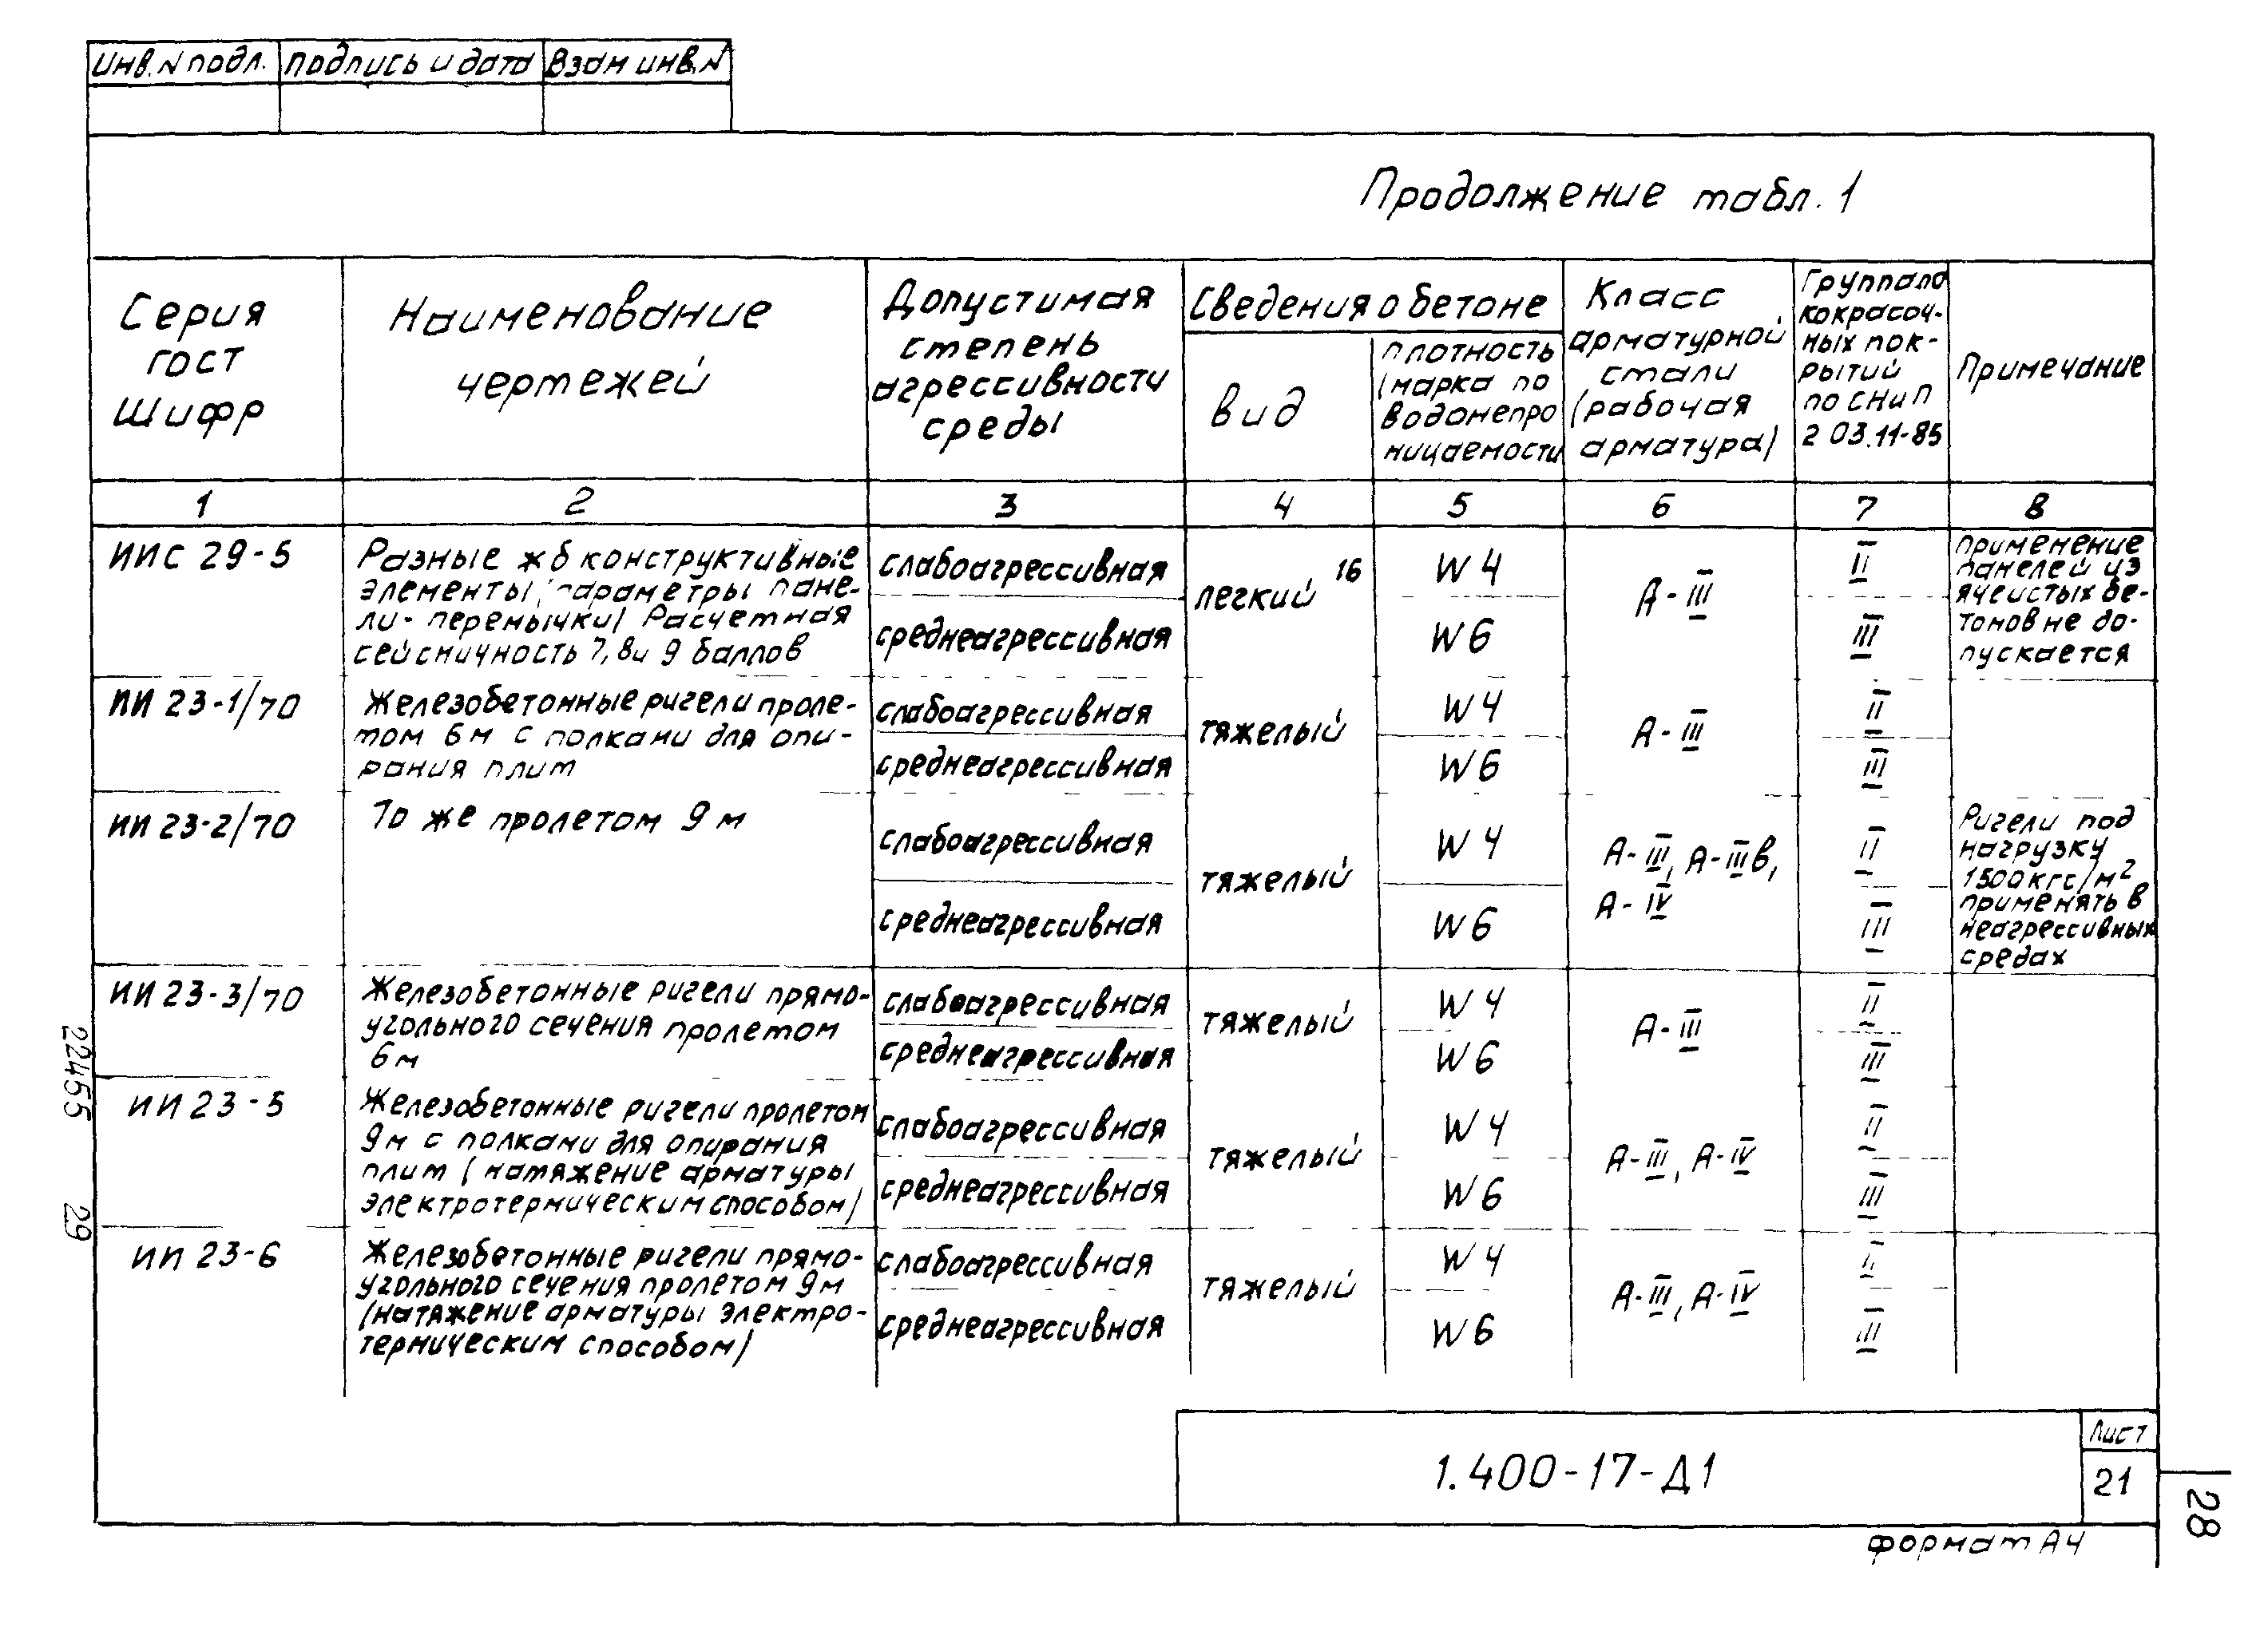 Инв. N подл. Подпись и дата Взам инв. N
Продолжение табл. 1
Серия
гост
Шифр
Наименование
чертежей
Допустимая
степень
агрессивности
среды
Сведения о бетоне
вид
плотность
(марка по
водонепро
ницаемости
Класс
арматурной
стали
(рабочая
арматура)
Группа ла
кокрасоч-
ных пок-
рытий
по СНиП
2 03.11-85
Примечание
1 2 3 4 5 6 7 8
ИИС 29-5
Разные жб конструктивные
элементы, параметры пане-
ли-перемычки) Расчетная
сейсмичность 7, 8 и 9 баллов
слабоагрессивная
среднеагрессивная
легкий 16
W4
W6
А-III
II
III
применение
панелей из
ячеистых бе-
тонов не до-
пускается
ИИ 23-1/70
Железобетонные ригели проле-
том 6м с полками для опи-
рания плит
слабоагрессивная
среднеагрессивная
тяжелый
W4
W6
А-III
II
III
ИИ 23-2/70
То же пролетом 9 м
слабоагрессивная
среднеагрессивная
тяжелый
W4
W6
А-III, А-IIIв,
А-IV
II
III
Ригели под
нагрузку
1500кгс/м²
применять в
неагрессивных
средах
ИИ 23-3/70
Железобетонные ригели прямо-
угольного сечения пролетом
6м
слабоагрессивная
среднеагрессивная
тяжелый
W4
W6
А-III
II
III
ИИ 23-5
Железобетонные ригели пролетом
9м с полками для опирания
плит (натяжение арматуры
электротермическим способом)
слабоагрессивная
среднеагрессивная
тяжелый
W4
W6
А-III, А-IV
II
III
ИИ 23-6
Железобетонные ригели прямо-
угольного сечения пролетом 9м
(натяжение арматуры электро-
термическим способом)
слабоагрессивная
среднеагрессивная
тяжелый
W4
W6
А-III, А-IV
II
III
22455 29
1.400-17-Д1
Лист
21
28
формат А4